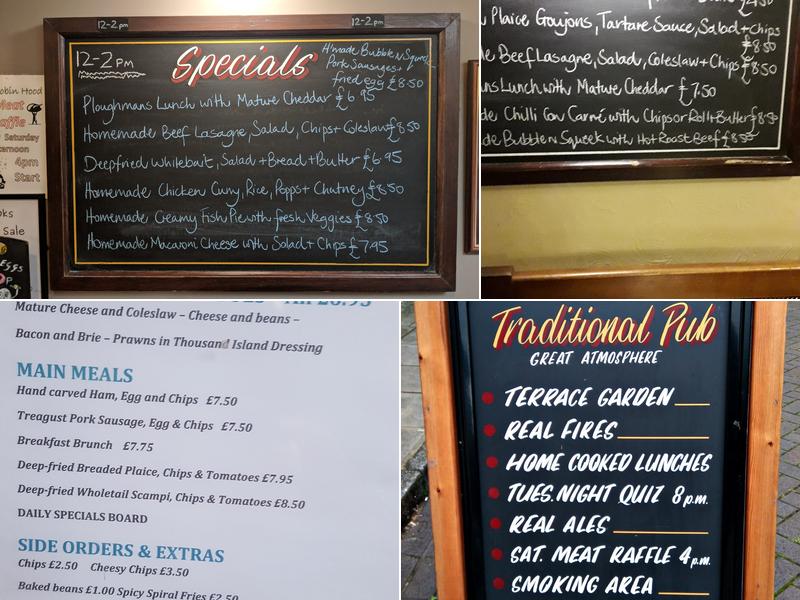 12-2pm
12-2pm
12-2 PM
Specials
H'made Bubble N Squeek
Pork Sausages+
fried egg £8.50
Ploughmans Lunch with Mature Cheddar £6.95
Homemade Beef Lasagne, Salad, Chips+Coleslaw £8.50
Deepfried Whitebait, Salad+Bread+Butter £6.95
Homemade Chicken Curry, Rice, Popps+Chutney £8.50
Homemade Creamy Fish Pie with fresh Veggies £8.50
Homemade Macaroni Cheese with Salad+Chips £7.95
obin Hood
Meat
affle
Saturday
ternoon
4pm
Start
oks
Sale
EGGS
Plaice Goujons, Tartare Sauce, Salad+Chips
£8.50
de Beef Lasagne, Salad, Coleslaw+Chips £8.50
ns Lunch with Mature Cheddar £7.50
de Chilli Con Carné with Chips or Roll+Butter £8.50
de Bubble n Squeek with Hot Roast Beef £8.50
Mature Cheese and Coleslaw – Cheese and beans –
Bacon and Brie – Prawns in Thousand Island Dressing
MAIN MEALS
Hand carved Ham, Egg and Chips £7.50
Treagust Pork Sausage, Egg & Chips £7.50
Breakfast Brunch £7.75
Deep-fried Breaded Plaice, Chips & Tomatoes £7.95
Deep-fried Wholetail Scampi, Chips & Tomatoes £8.50
DAILY SPECIALS BOARD
SIDE ORDERS & EXTRAS
Chips £2.50 Cheesy Chips £3.50
Baked beans £1.00 Spicy Spiral Fries £2.50
Traditional Pub
GREAT ATMOSPHERE
TERRACE GARDEN
REAL FIRES
HOME COOKED LUNCHES
TUES. NIGHT QUIZ 8p.m.
REAL ALES
SAT. MEAT RAFFLE 4p.m.
SMOKING AREA